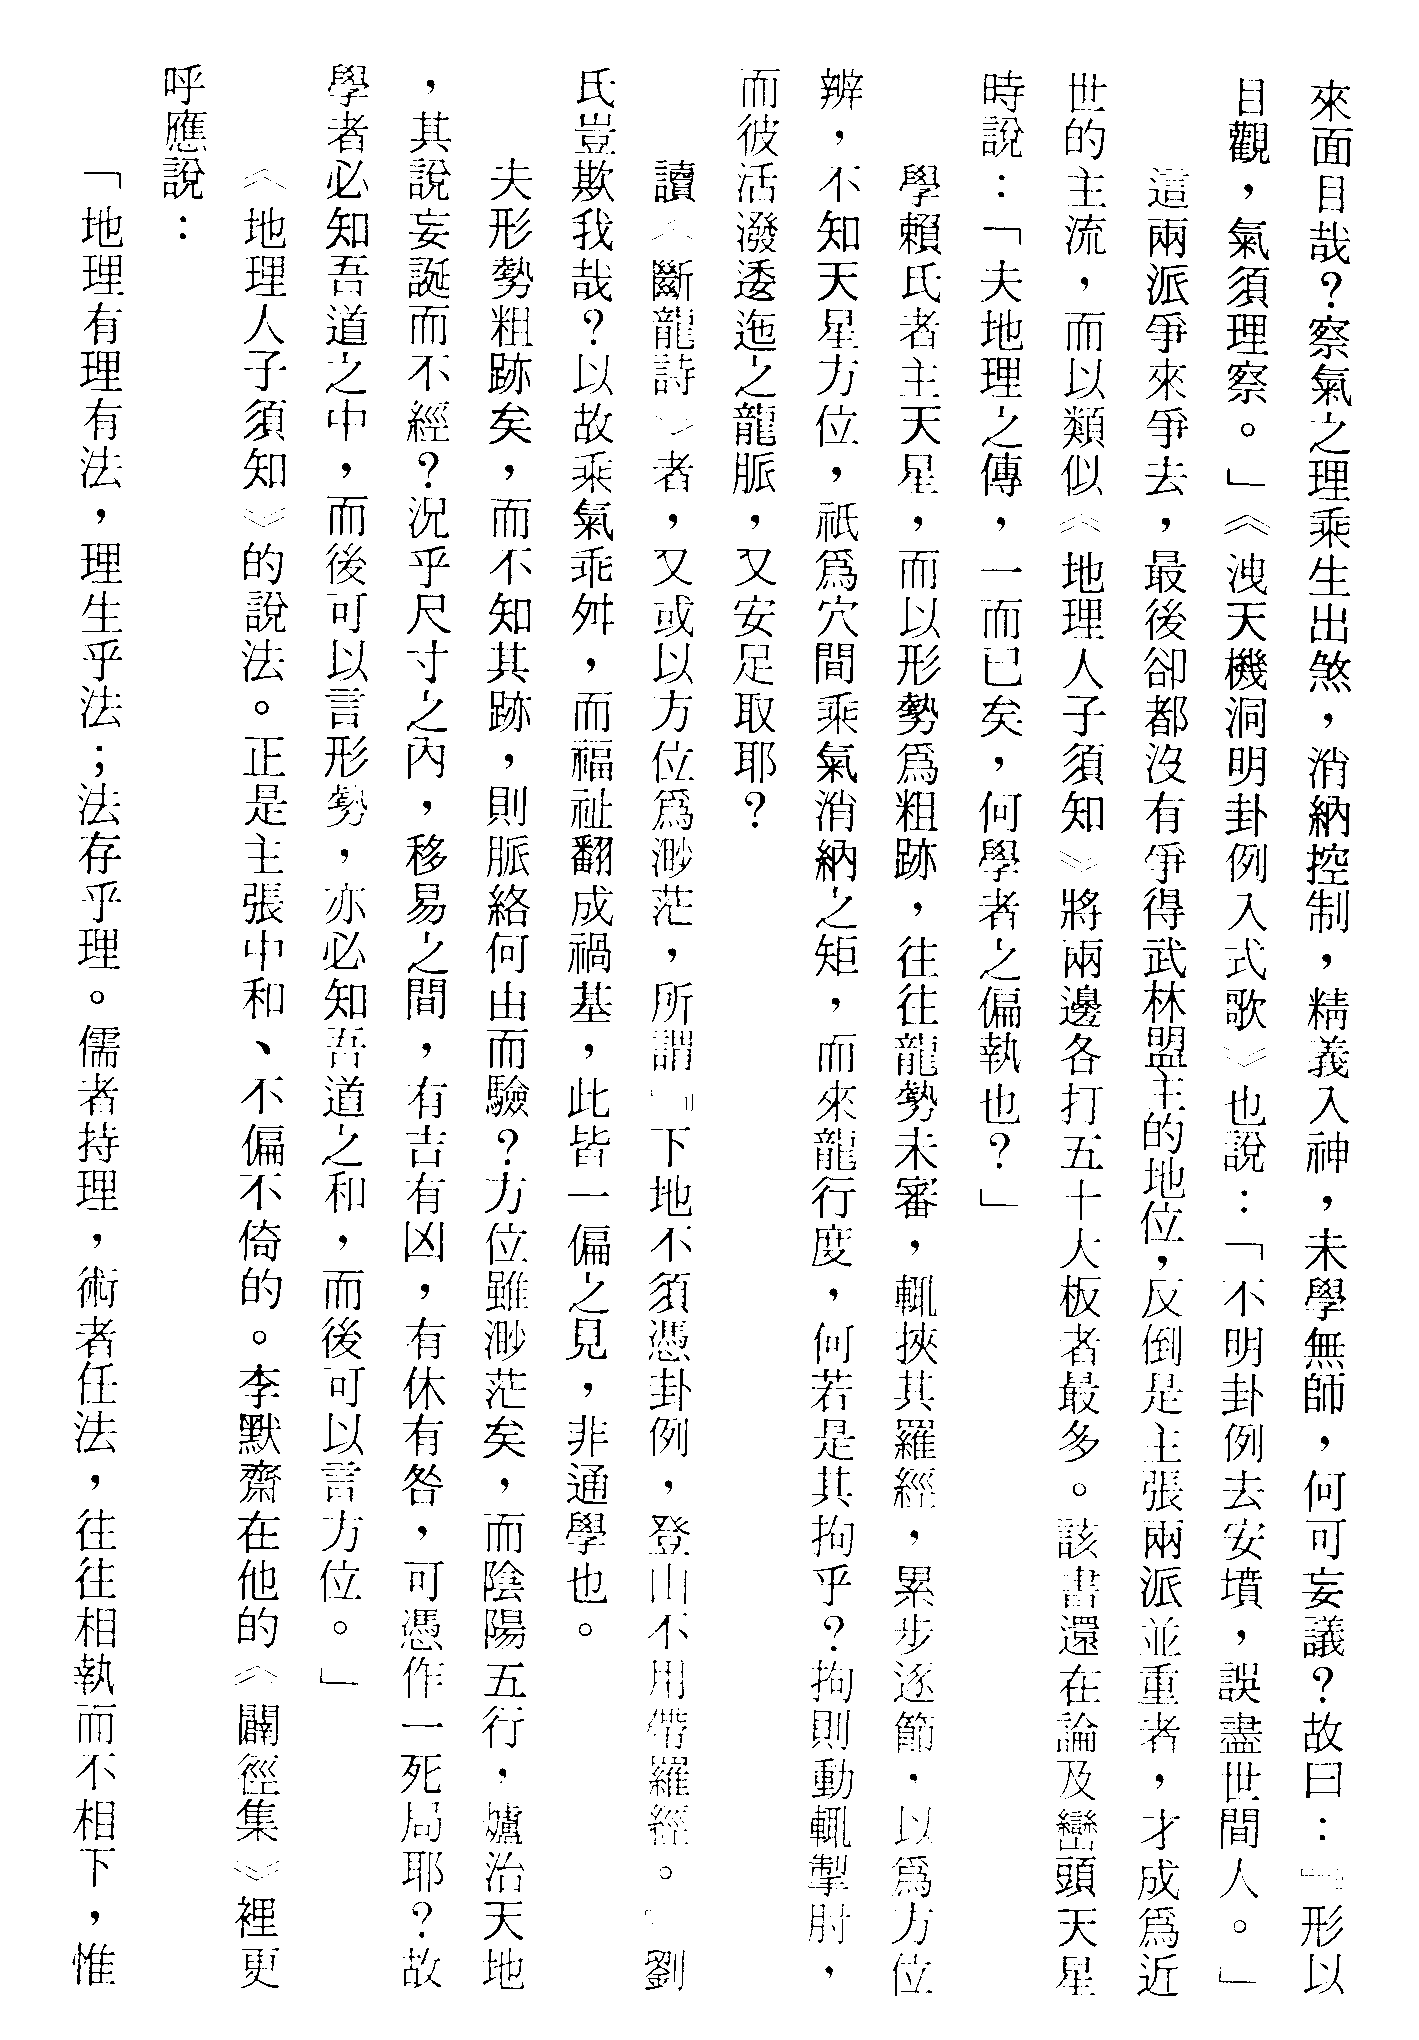 來面目哉？察氣之理乘生出煞，消納控制，精義入神，未學無師，何可妄議？故曰：『形以
目觀，氣須理察。」《洩天機洞明卦例入式歌》也說：「不明卦例去安墳，誤盡世間人。」
這兩派爭來爭去，最後卻都沒有爭得武林盟主的地位，反倒是主張兩派並重者，才成為近
世的主流，而以類似《地理人子須知》將兩邊各打五十大板者最多。該書還在論及巒頭天星
時說：「夫地理之傳，一而已矣，何學者之偏執也？」
學賴氏者主天星，而以形勢爲粗跡，往往龍勢未審，輒挾其羅經，累步逐節，以爲方位
辨，不知天星方位，祇爲穴間乘氣消納之矩，而來龍行度，何若是其拘乎？拘則動輒掣肘，
而彼活潑逶迤之龍脈，又安足取耶？
讀《斷龍詩》者，又或以方位爲渺茫，所謂『下地不須憑卦例，登山不用帶羅經。』劉
氏豈欺我哉？以故乘氣乖舛，而福祉翻成禍基，此皆一偏之見，非通學也。
夫形勢粗跡矣，而不知其跡，則脈絡何由而驗？方位雖渺茫矣，而陰陽五行，爐治天地
，其說妄誕而不經？況乎尺寸之內，移易之間，有吉有凶，有休有咎，可憑作一死局耶？故
學者必知吾道之中，而後可以言形勢，亦必知吾道之和，而後可以言方位。」
《地理人子須知》的說法。正是主張中和、不偏不倚的。李默齋在他的《闢徑集》裡更
呼應說：
「地理有理有法，理生乎法；法存乎理。儒者持理，術者任法，往往相執而不相下，惟